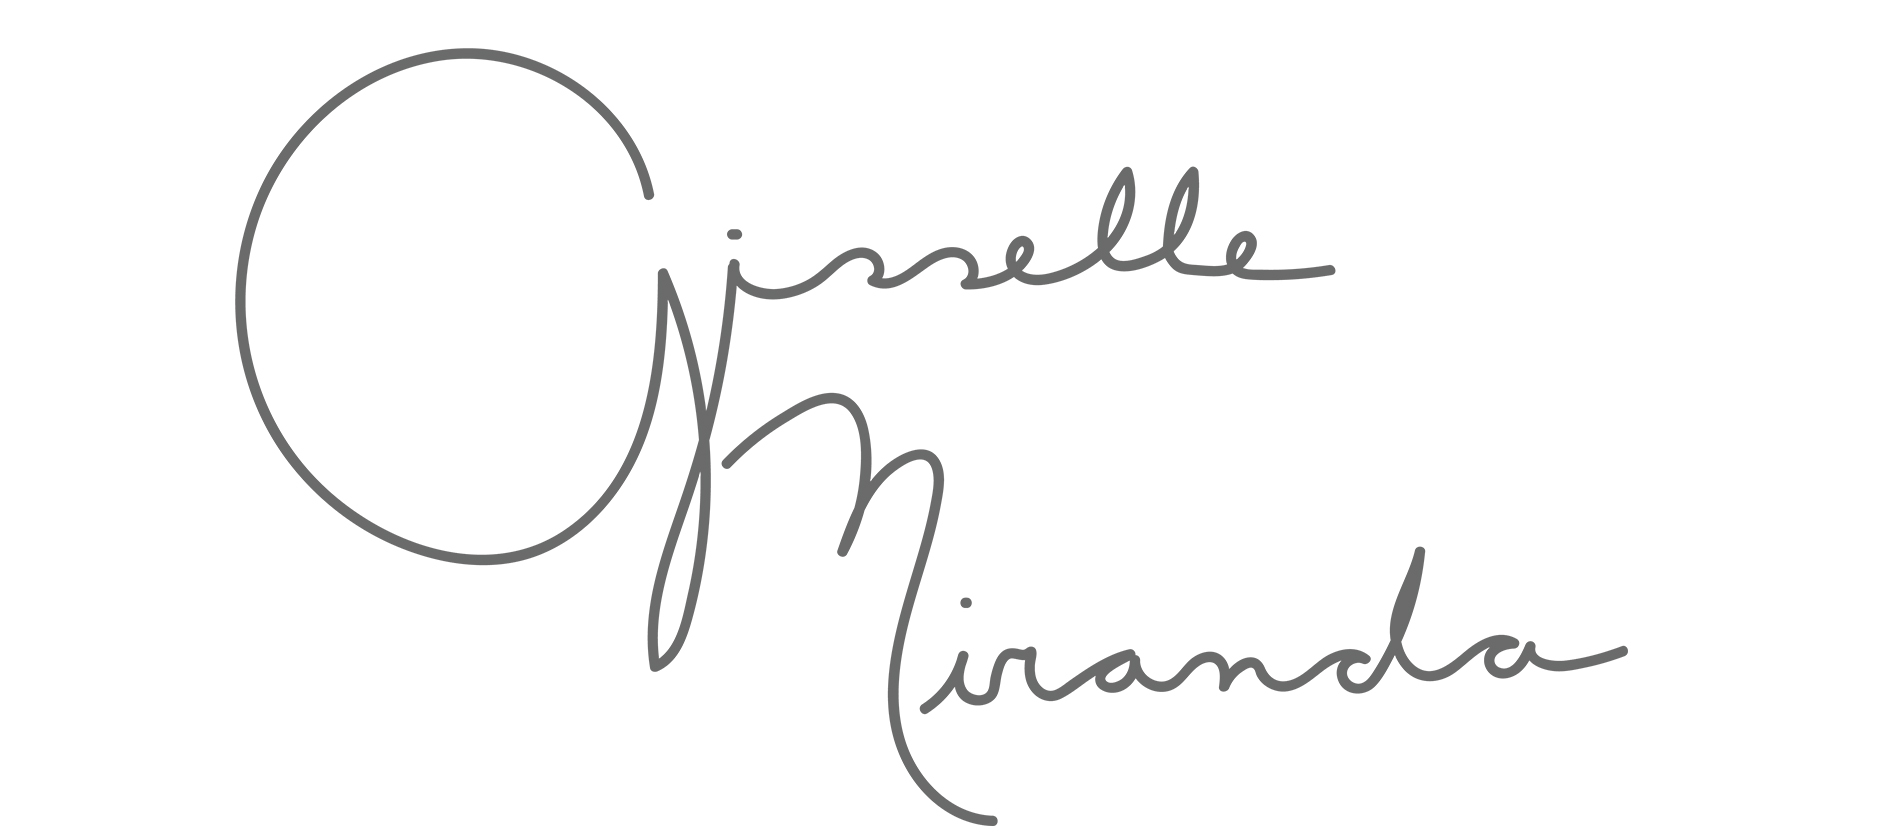 Gisselle
Miranda